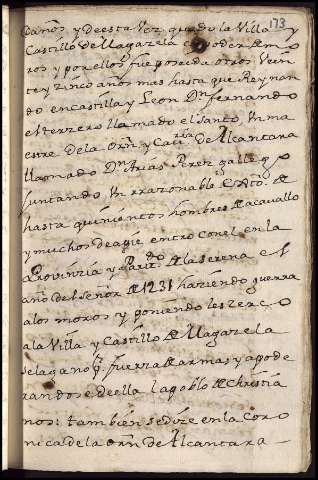 173
años, y de esta vez quedo la Villa y
Castillo de Magazela en poder de mo
ros y por ellos fue poseida otros vein
te y zinco años mas hasta que Reynan
do en castilla y Leon Dn fernando
el terzero llamado el Santo, Un ma
estre de la Orn y Cavria de Alcantara
llamado Dn Arias Perez gallego
juntando Un razonable Exto. de
hasta quinientos hombres de acavallo
y muchos de a pie entro con el en la
Provinzia y Partido de la Serena el
año del Señor de 1231 haziendo guerra
a los moros y poniendoles zerco
a la Villa y Castillo de Magazela
se la gano pr. fuerza de armas y apode
randose de ella la poblo de Christia
nos: tambien se dize en la Coro
nica de la Orn de Alcantara